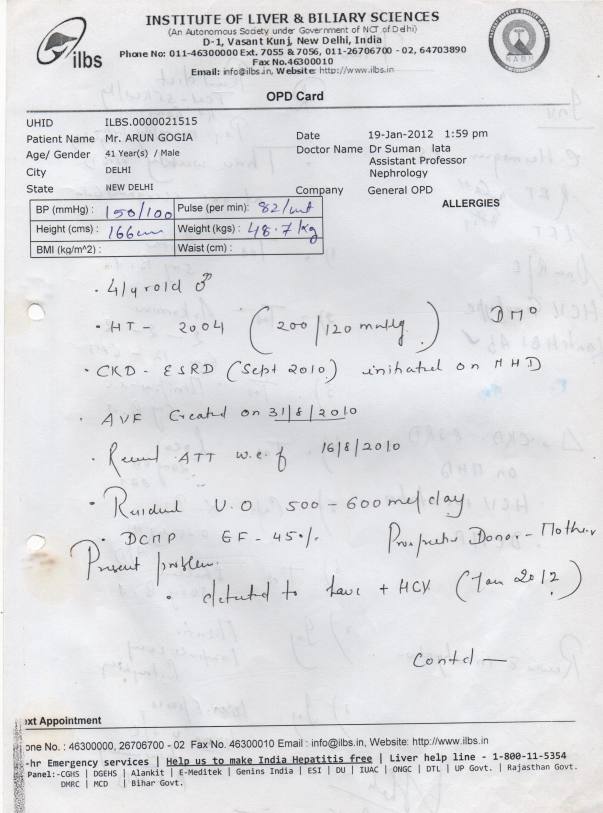 ilbs
INSTITUTE OF LIVER & BILIARY SCIENCES
(An Autonomous Society under Government of NCT of Delhi)
D-1, Vasant Kunj, New Delhi, India
Phone No: 011-46300000 Ext. 7055 & 7056, 011-26706700 - 02, 64703890
Fax No.46300010
Email: info@ilbs.in, Website: http://www.ilbs.in
NABH
OPD Card
UHID ILBS.0000021515
Patient Name Mr. ARUN GOGIA Date 19-Jan-2012 1:59 pm
Age/ Gender 41 Year(s) / Male Doctor Name Dr Suman lata
Assistant Professor
City DELHI Nephrology
State NEW DELHI Company General OPD
BP (mmHg) : 150/100 Pulse (per min): 82/mt ALLERGIES
Height (cms) : 166cm Weight (kgs) : 48.7kg
BMI (kg/m^2) : Waist (cm) :
· 41 yr old ♂
· HT - 2004 (200/120 mmHg)
· CKD - ESRD (Sept 2010) initiated on MHD
· AVF Created on 31/8/2010
· ATT w.e.f 16/8/2010
· Residual U.O 500 - 600 ml/day
· DCMP EF - 45% Prospective Donor - Mother
Present problem
· detected to have + HCV (Jan 2012)
Contd —
ext Appointment
one No. : 46300000, 26706700 - 02 Fax No. 46300010 Email : info@ilbs.in, Website: http://www.ilbs.in
-hr Emergency services | Help us to make India Hepatitis free | Liver help line - 1-800-11-5354
Panel:-CGHS | DGEHS | Alankit | E-Meditek | Genins India | ESI | DU | IUAC | ONGC | DTL | UP Govt. | Rajasthan Govt.
DMRC | MCD | Bihar Govt.